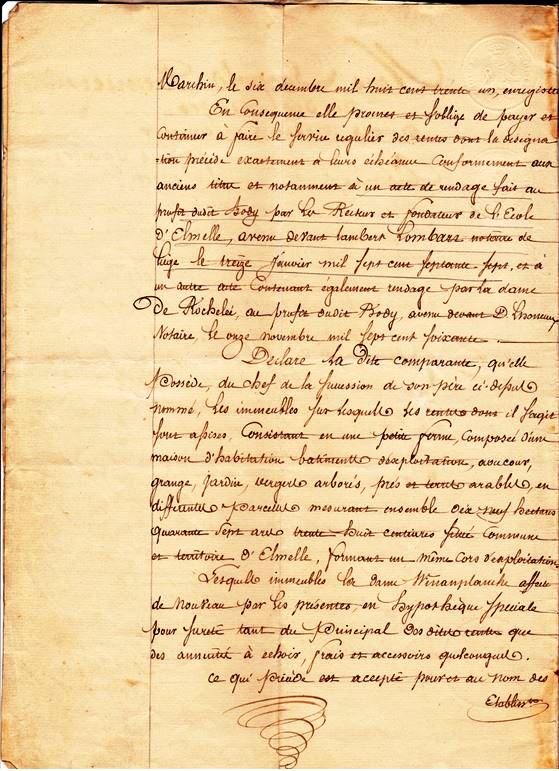 Marchin, le six decembre mil huit cent trente un, enregistré
En Consequence elle promet et s'oblige de payer et
Continuer a faire le service regulier des rentes dont la designa
-tion précède exactement a leurs échéance Conformement aux
anciens titre et notamment à un acte de rendage fait au
profit dudit Body par les Recteur et fondateur de l'Ecole
D'Elmelle, avenu devant lambert Lombart notaire de
liège le treize janvier mil sept cent septante sept, et à
un autre acte Contenant également rendage par la dame
De Rochelée, au profit dudit Body, avenu devant D.
Notaire le onze novembre mil sept cent soixante.
Declare la dite comparante, qu'elle
Possède, du chef de la succession de son père ci-dessus
nommé, les immeubles sur lesquels les rentes dont il s'agit
sont assises. Consistant en une petite ferme, Composée d'une
maison d'habitation batiments d'exploitation, avec cour,
grange, jardin, vergers arborés, prés et terres arables, en
différentes Parcelles mesurant ensemble dix neuf hectares
quarante sept ares trente huit centiares situé Commune
et territoire D'Elmelle, formant un même Cors d'exploitation
Lesquels immeubles la dame affecte
de nouveau par les présentes, en hypothèque spéciale
pour sureté tant du Principal des dites rentes que
des annuité à echoir, frais et accessoirs quelconques.
Ce qui précède est accepté pour et au nom des
Etablissts